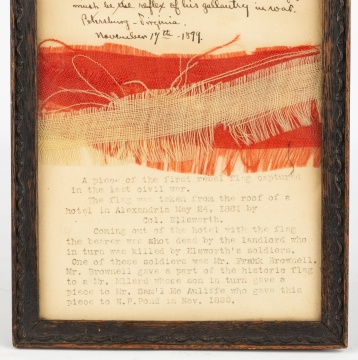 must be the reflex of his gallantry in war.
Petersburg - Virginia.
November 17th - 1899.
A piece of the first rebel flag captured
in the last civil war.
The flag was taken from the roof of a
hotel in Alexandria May 24, 1861 by
Col. Ellsworth.
Coming out of the hotel with the flag
the bearer was shot dead by the landlord who
in turn was killed by Elsworth's soldiers.
One of these soldiers was Mr. Frank Brownell.
Mr. Brownell gave a part of the historic flag
to a Mr. whose son in turn gave a
piece to Mr. Sam'l Mc Auliffe who gave this
piece to N.P.Pond in Nov. 1899.